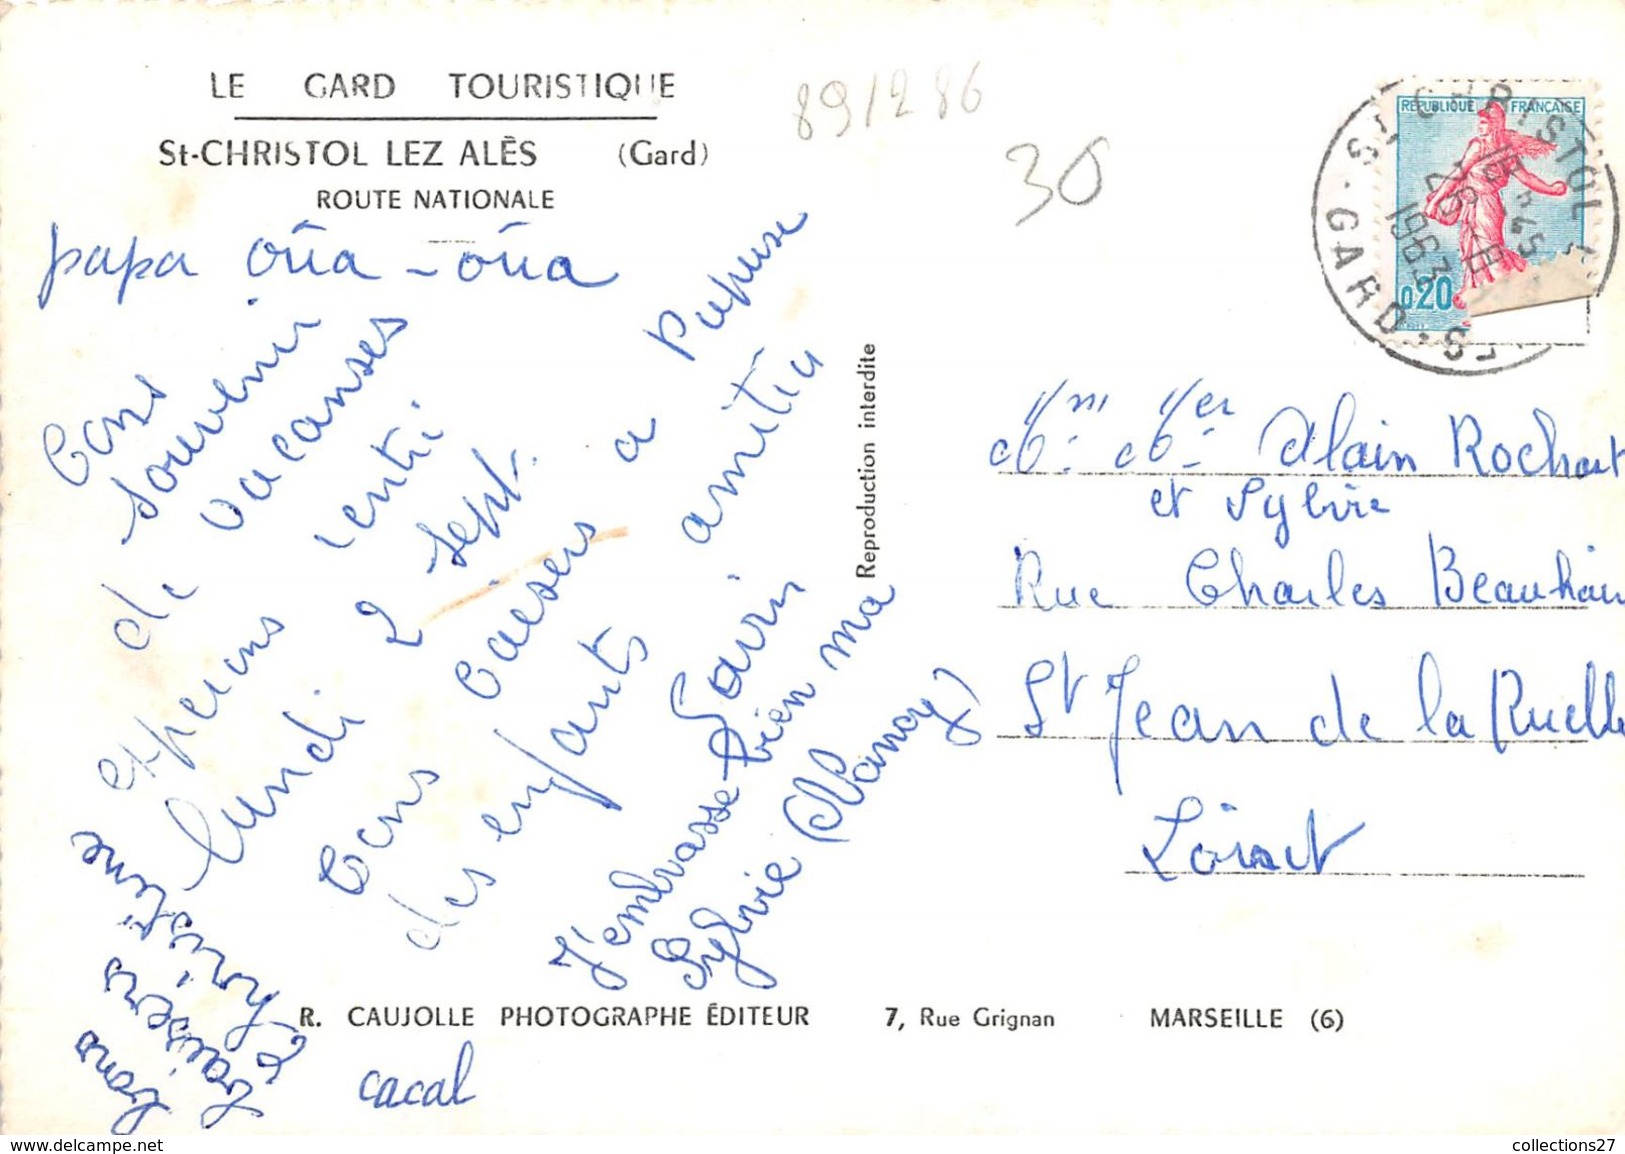 LE GARD TOURISTIQUE
St-CHRISTOL LEZ ALÈS (Gard)
ROUTE NATIONALE
89/286
30
RÉPUBLIQUE FRANÇAISE
0,20
ST CHRISTOL
1963
GARD
papa oûa - oûa
Bons
souvenir
de vacanses
lundi 2 sept.
Bons baisers a Pupuse
des enfants amitiu
J'embrasse bien ma
Sylvie (Nancy)
bons
baisers
christine
cacal
Reproduction interdite
Mm Mer Alain Rochart
et Sylvie
Rue Charles Beauhair
St Jean de la Ruelle
Loiret
R. CAUJOLLE PHOTOGRAPHE ÉDITEUR 7, Rue Grignan MARSEILLE (6)
www.delcampe.net
collections27